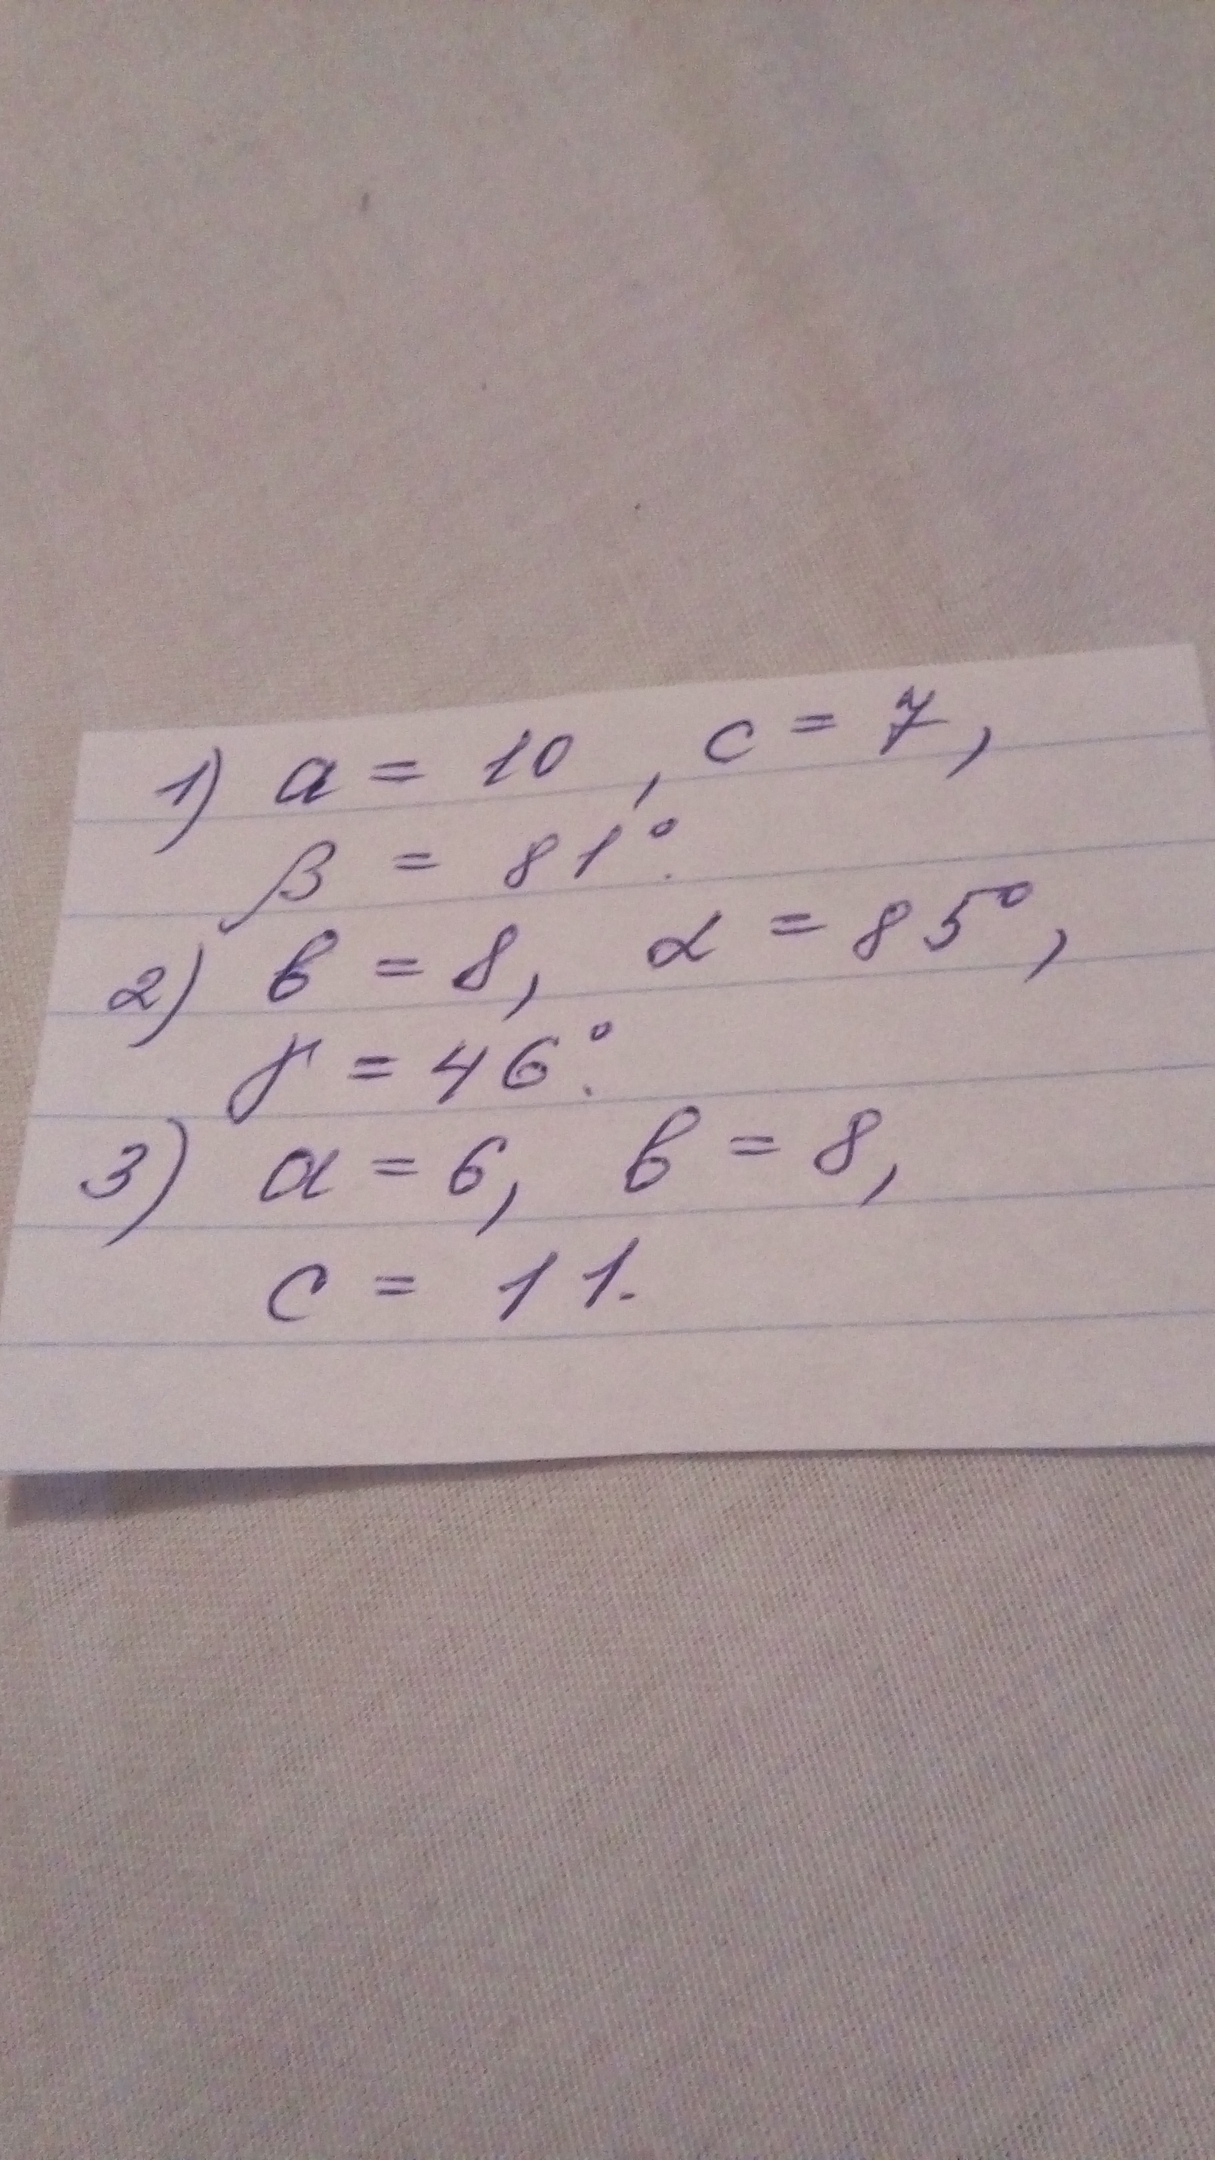 1) a = 10, c = 7,
β = 81°.
2) в = 8, α = 85°,
γ = 46°.
3) a = 6, в = 8,
c = 11.